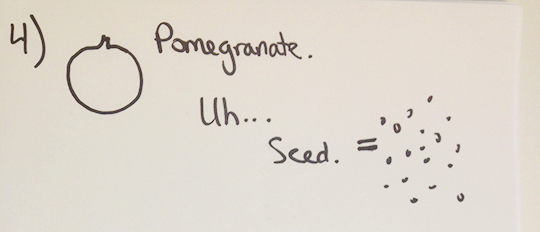 4) Pomegranate.
Uh...
Seed. =